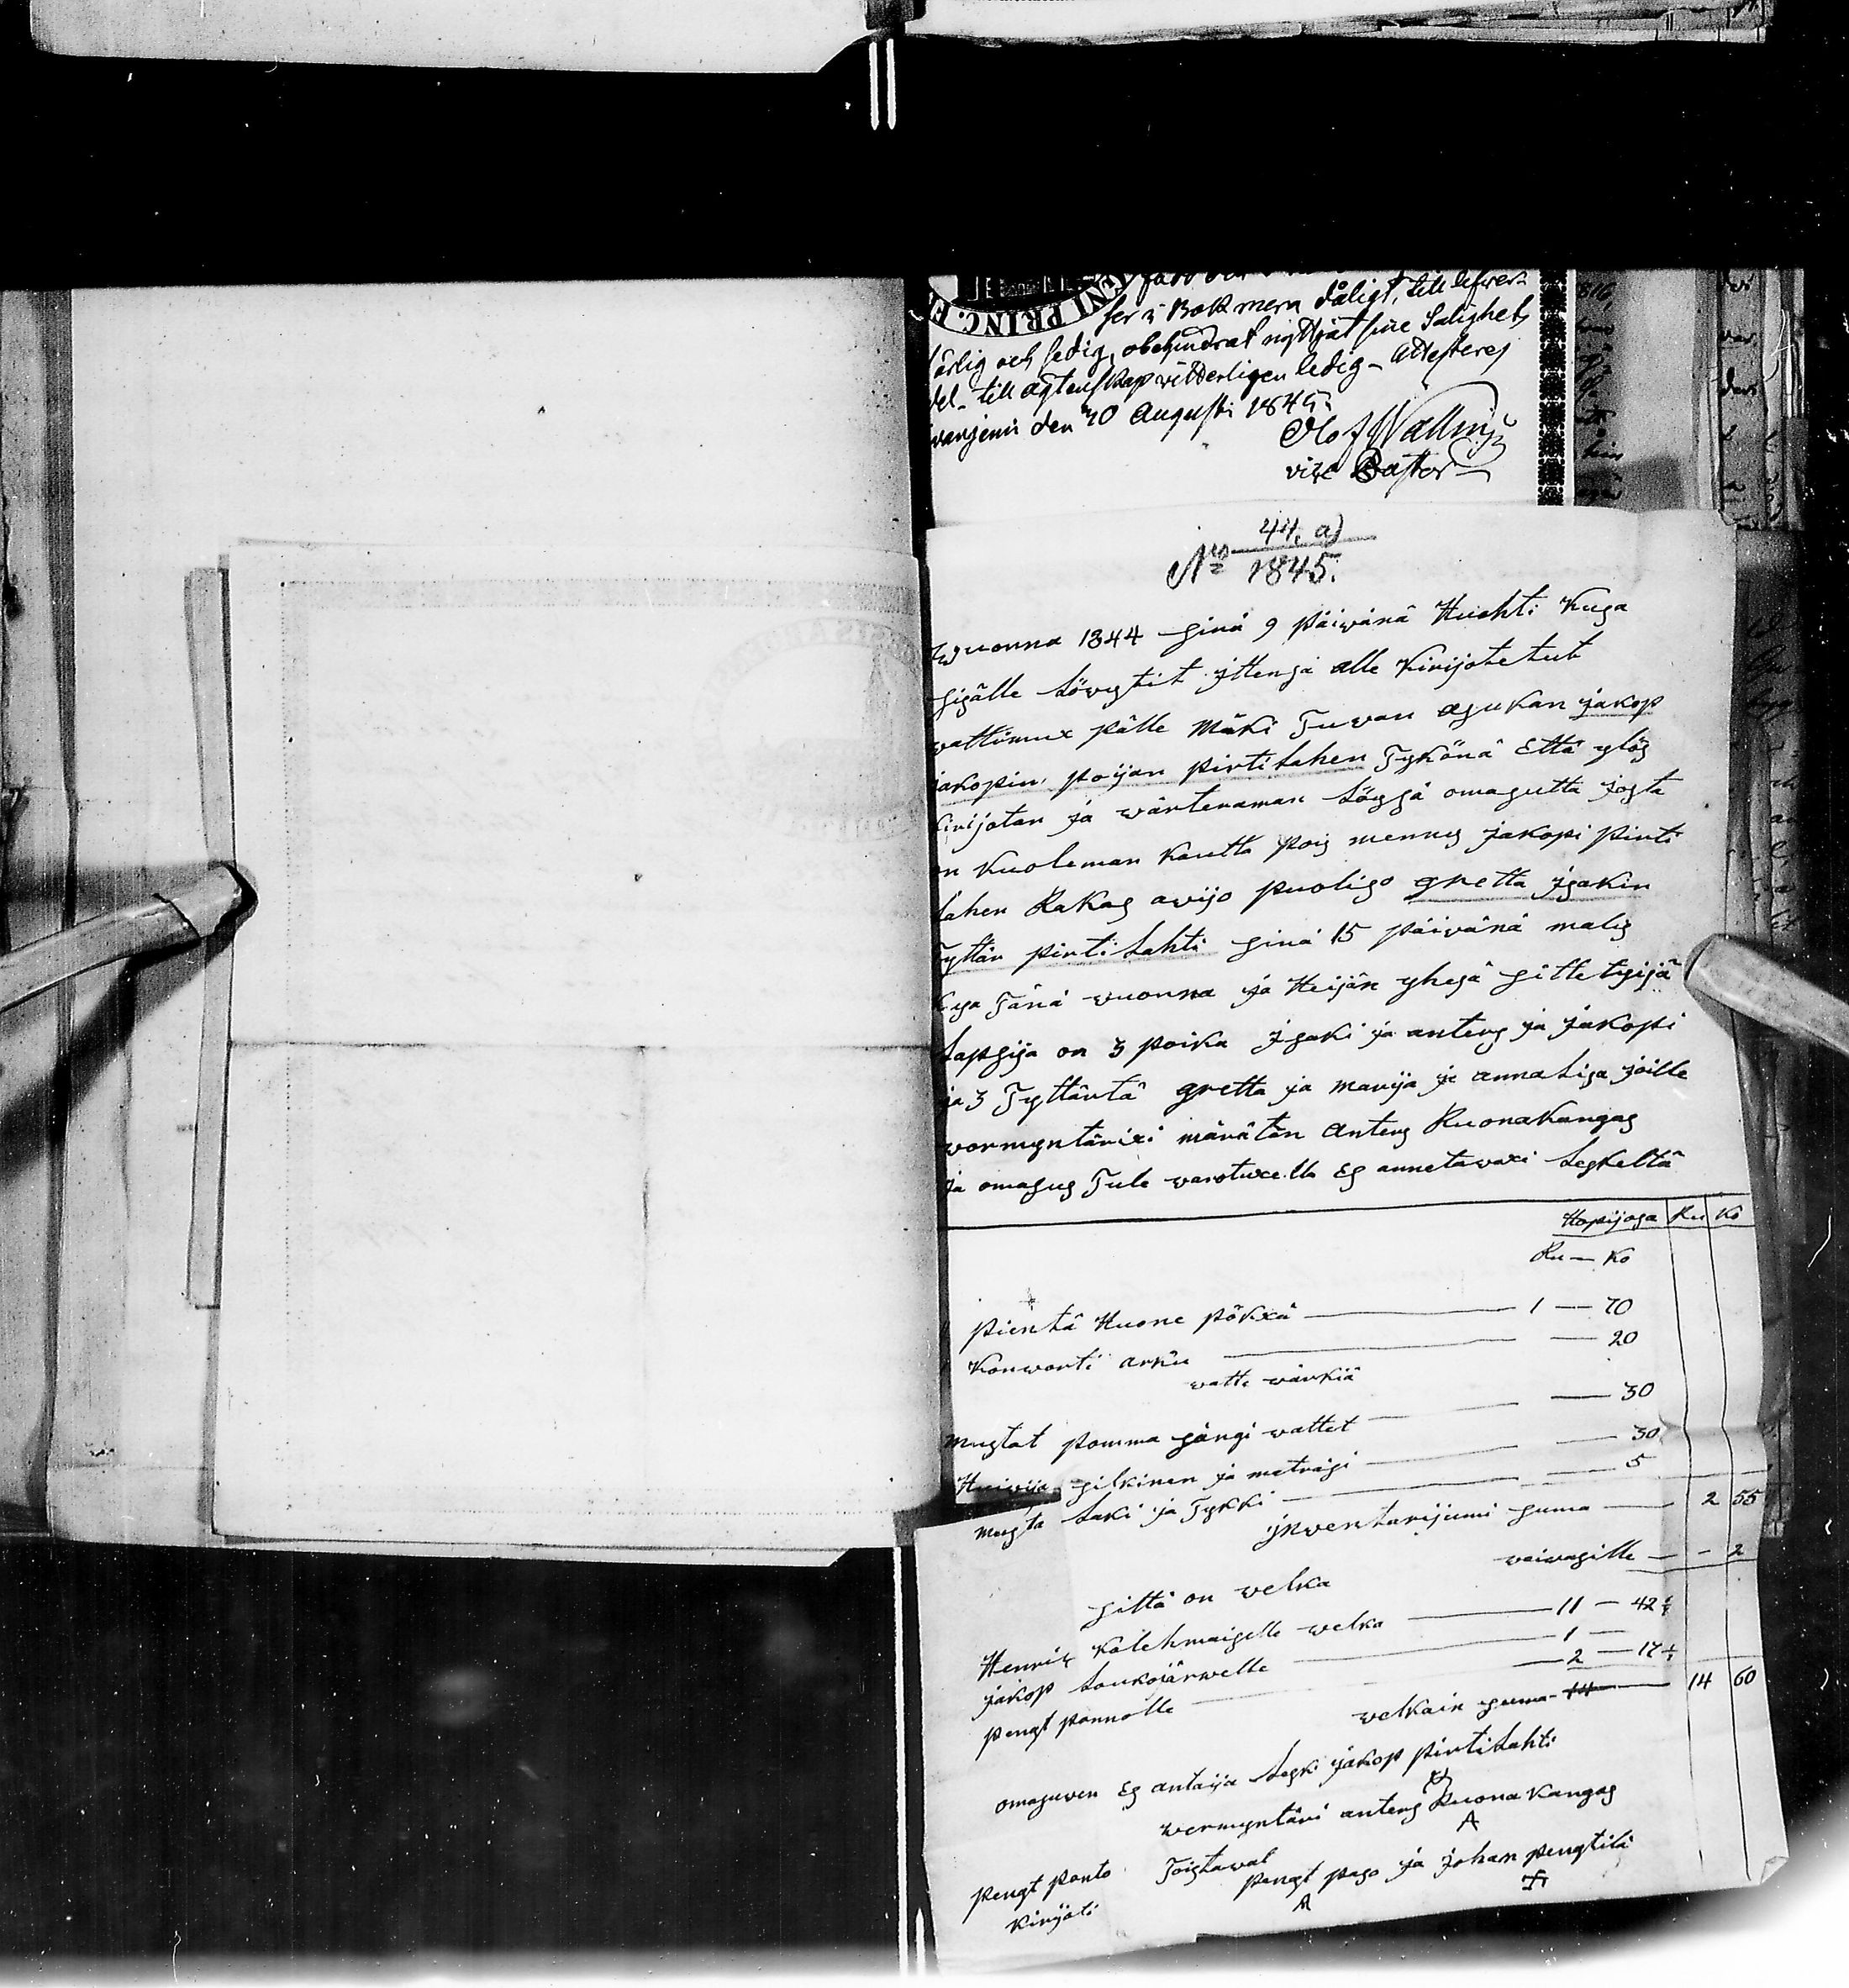 fer i Bok mern dåligt, till lefvern
ärlig och ledig, obehindrat nyttjat sine Salighets
del – till ägtenskap vitterligen ledig – Attesteres
vanjemi den 20 Augusti 1845.
Olof Wallin
vice Pastor
44. a)
No 1845.
Wuonna 1844 sinä 9 päiwänä Huohti Kuga
sigälle Löwystit ittensä alle Kirijotetut
wattimux pälle Mäki Tuwan asukan jakop
jakopin poijan pirtilahen Tykönä Että ylös
kirijotan ja wärteraman Löggä omasutta josta
on Kuoleman Kautta pois mennys jakopi pirti
lahen Rakas awijo puoliso gretta isakin
Tyttär pirti Lahti sinä 15 päiwänä malis
Kuga Tänä wuonna ja Heijän yhesä sitte tysijä
Lapsija on 3 poika isaki ja anters ja jakopi
ja 3 Tyttärtä gretta ja marija ja anna Lisa joille
wormyntärixi märätän Anters Ruonakangas
ja omasus Tule warotuxella Es annetawaxi Leskeltä
Hopijasa Ru Ko
Ru — Ko
pientä Huone pökxä — 1 — 70
Konworti arku — 20
watte wärkiä
mustat pomma sängi wattet — 30
Huiwija silkinen ja metraisi — 30
musta Laki ja Tykki — 5
inwentarijumi suma — 2 55
waiwasille — - 2
sittä on welka
Henrik Kolehmaiselle welka — 11 — 42
jakop Loukojärwelle — 1 —
pengt ponnolle — 2 — 17
welkain suma 14 — 14 60
omasuen Es antaija Leski jakop pirtilahti
wormyntäri anters Ruona Kangas
A
pengt ponto Toistawat
Kirijoti pengt paso ja Johan pengtilä